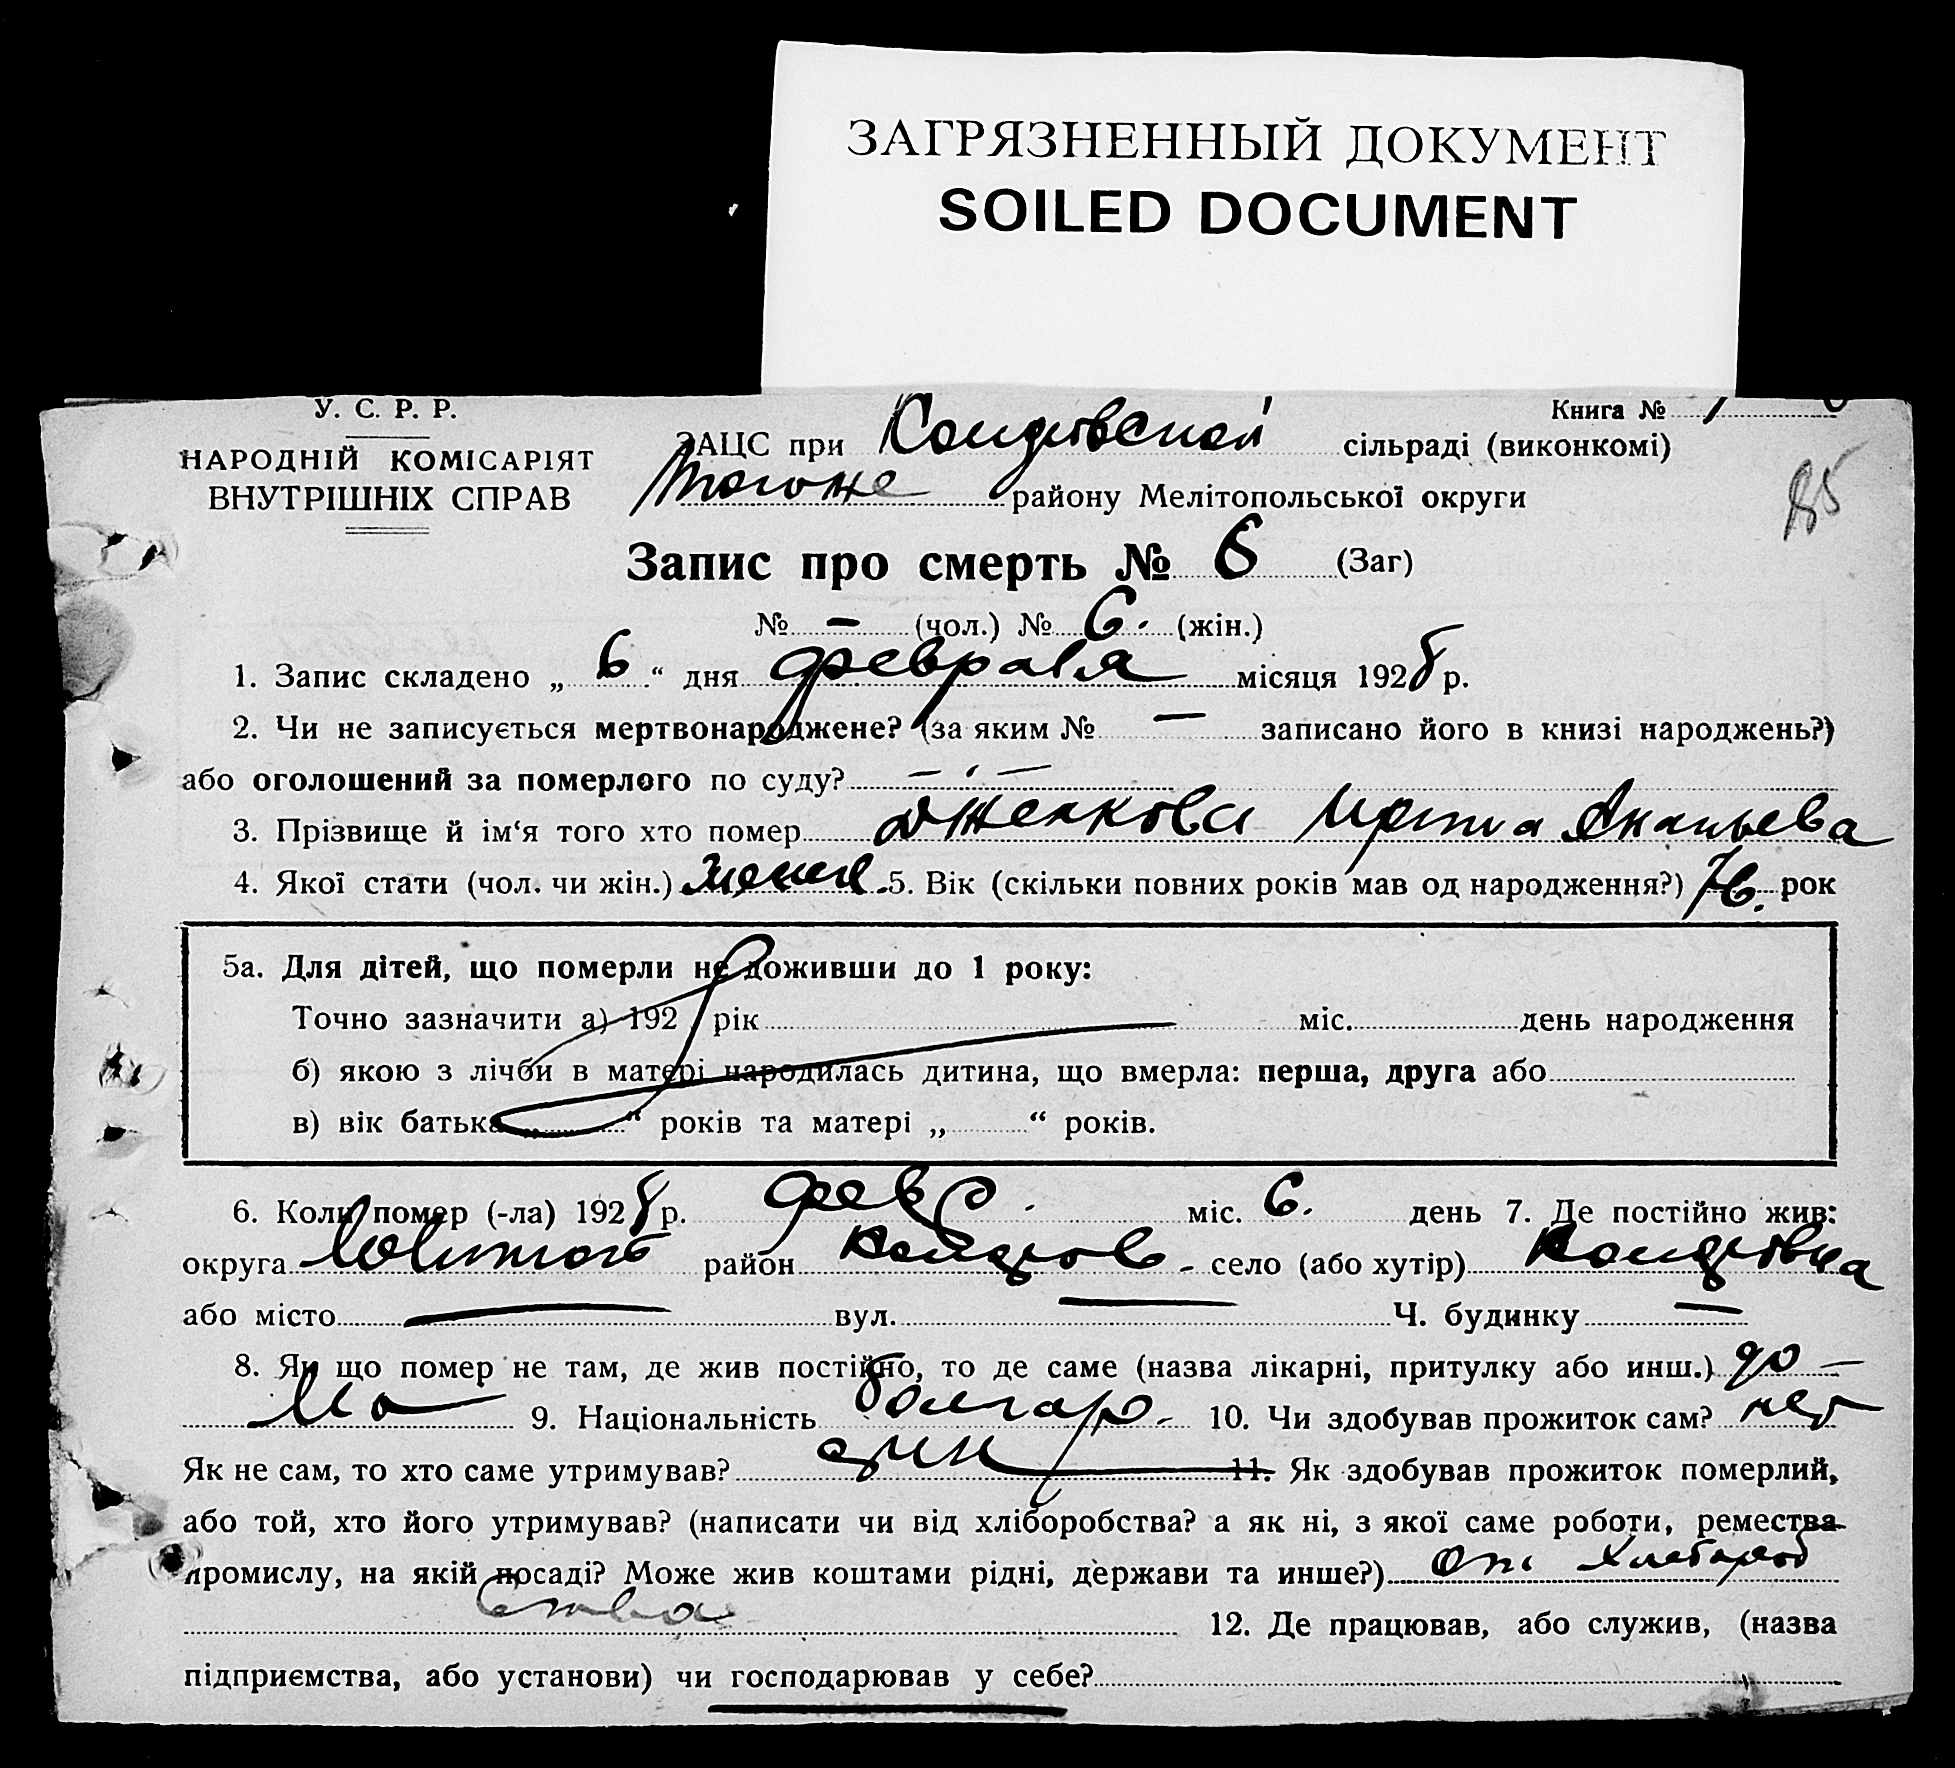 ЗАГРЯЗНЕННЫЙ ДОКУМЕНТ
SOILED DOCUMENT
У. С. Р. Р.
НАРОДНІЙ КОМІСАРІЯТ
ВНУТРІШНІХ СПРАВ
Книга № 1
ЗАЦС при сільраді (виконкомі)
Тогоже району Мелітопольської округи
85
Запис про смерть № 6 (Заг)
№ — (чол.) № 6. (жін.)
1. Запис складено „ 6 “ дня февраля місяця 1928 р.
2. Чи не записується мертвонароджене? (за яким № — записано його в книзі народжень?)
або оголошений за померлого по суду? — —
3. Прізвище й ім‘я того хто помер Ирина Ананьева
4. Якої стати (чол. чи жін.) 5. Вік (скільки повних років мав од народження?) 76. рок
5а. Для дітей, що померли не доживши до 1 року:
Точно зазначити а) 192 рік міс. день народження
б) якою з лічби в матері народилась дитина, що вмерла: перша, друга або
в) вік батька „ “ років та матері „ “ років.
6. Коли помер (-ла) 1928 р. февр. міс. 6. день 7. Де постійно жив:
округа район село (або хутір)
або місто — вул. — Ч. будинку —
8. Як що помер не там, де жив постійно, то де саме (назва лікарні, притулку або инш.) до—
ма 9. Національність болгар. 10. Чи здобував прожиток сам? нет
Як не сам, то хто саме утримував? сын 11. Як здобував прожиток померлий,
або той, хто його утримував? (написати чи від хліборобства? а як ні, з якої саме роботи, ремества
промислу, на якій посаді? Може жив коштами рідні, держави та инше?) От хлебороб
ства 12. Де працював, або служив, (назва
підприємства, або установи) чи господарював у себе?